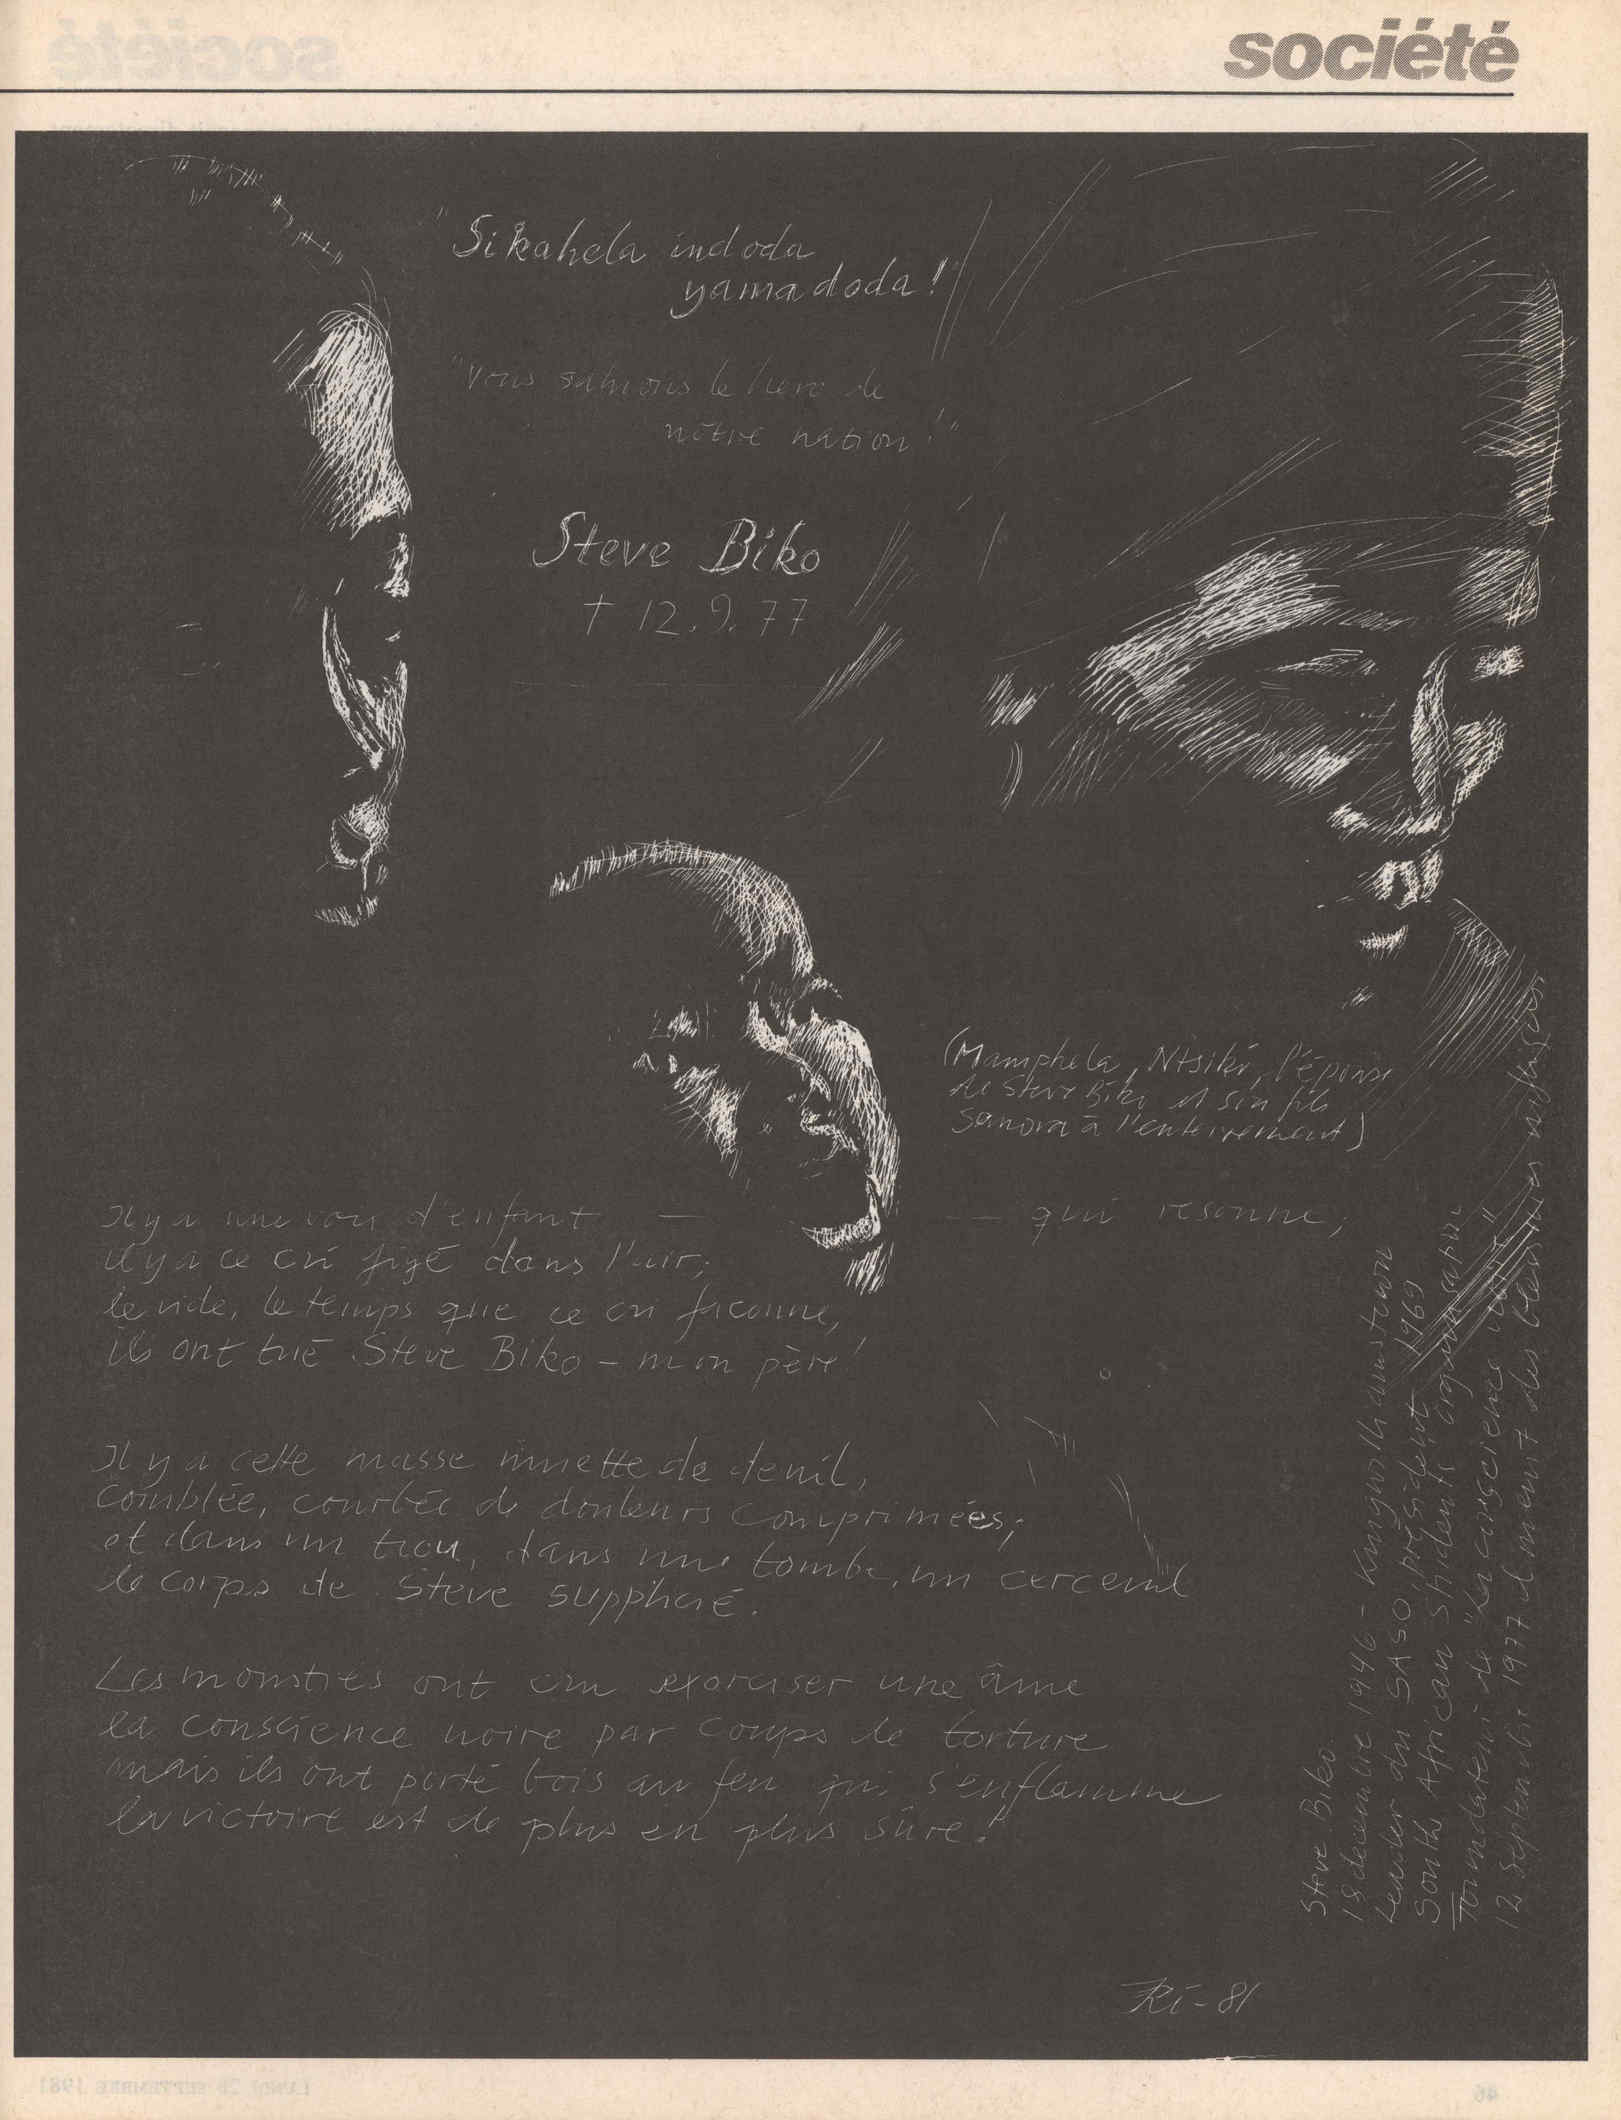 société
"Sikahela indoda
yamadoda!"
"Vous saluons le hero de
nôtre nation!"
Steve Biko
† 12.9.77
(Mamphela, Ntsiki, l'épouse
de Steve Biko et son fils
Samora à l'enterrement)
Il y a une voix d'enfant — — qui resonne,
il y a ce cri figé dans l'air,
le vide, le temps que ce cri façonne,
ils ont tué Steve Biko – mon père!
Il y a cette masse muette de deuil,
comblée, courbée de douleurs comprimées,
et dans un trou, dans une tombe, un cerceuil
le corps de Steve supplicié.
Les monstres ont cru exorciser une âme
la conscience noire par coups de torture
mais ils ont porté bois au feu qui s'enflamme
la victoire est de plus en plus sûre!
Steve Biko.
18 decembre 1946 – Kingwilliamstown
Leader du SASO, président 1969
South African Students organisation
Fondateur de "La conscience noire"
12 septembre 1977 meurt des blessures infligées.
Ri-81